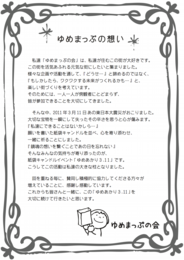 ゆめまっぷの想い
私達「ゆめまっぷの会」は、私達が住むこの街が大好きです。
この街を活気あふれる元気な街にしたいと集まりました。
様々な企画や活動を通して、「どうせ…」と諦めるのではなく、
「もしかしたら、ワクワクする未来がつくれるかも…」と、
楽しい街づくりを考えています。
そのためには、一人一人が問題意識にとどまらず、
皆が夢語できることを大切にしてきました。
そんな中、2011年3月11日あの東日本大震災がおこりました。
大切な宝物を一瞬にして失ったその辛さを思うと心が痛みます。
「私達にできることはないかしら…」
願いを書いた紙袋キャンドルを並べ、心を寄り添わせ、
一緒に祈ることにしました。
「鎮魂の想いを繋ぐことであの日を忘れない」
そんなみんなの気持ちが寄り添ったのが、
紙袋キャンドルイベント「ゆめあかり3.11」です。
こうしてこの活動は私達の大きな柱となりました。
回を重ねる毎に、献身に積極的に協力してくださる方々が
増えていることに、感謝し感動しています。
これからも皆さんと一緒に、この「ゆめあかり3.11」を
大切に続けて行きたいと思います。
ゆめまっぷの会